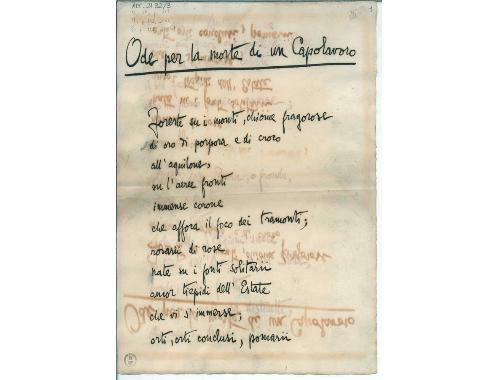 Ode per la morte di un Capolavoro
Foreste su i monti, chiome fragorose
di oro di porpora e di croco
all'aquilone,
su l'aeree fronti
immense corone
che affora il foco dei tramonti;
rosarii di rose
nate su i fonti solitarii
ancor tiepidi dell'Estate
che vi s'immerse;
orti, orti conclusi, pomarii